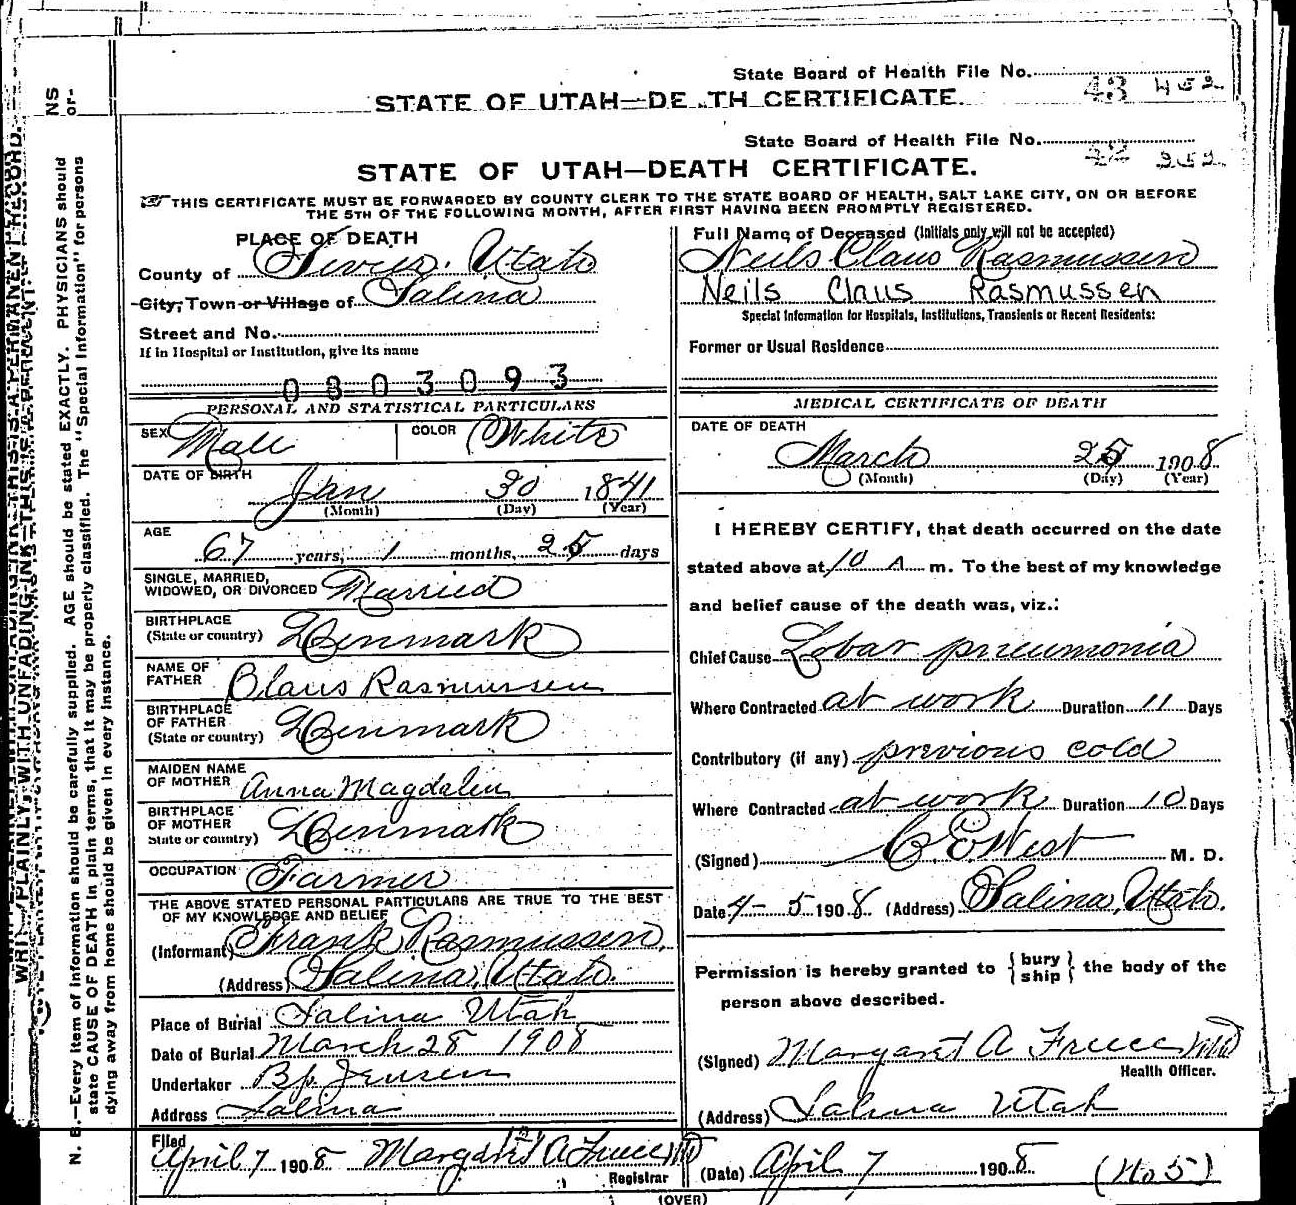 State Board of Health File No. 43 452
STATE OF UTAH—DE TH CERTIFICATE.
State Board of Health File No. 252
STATE OF UTAH—DEATH CERTIFICATE.
THIS CERTIFICATE MUST BE FORWARDED BY COUNTY CLERK TO THE STATE BOARD OF HEALTH, SALT LAKE CITY, ON OR BEFORE
THE 5TH OF THE FOLLOWING MONTH, AFTER FIRST HAVING BEEN PROMPTLY REGISTERED.
PLACE OF DEATH
County of Sevier. Utah
City, Town or Village of Salina
Street and No.
If in Hospital or Institution, give its name
0803093
Full Name of Deceased (Initials only will not be accepted)
Neils Claus Rasmussen
Neils Claus Rasmussen
Special Information for Hospitals, Institutions, Transients or Recent Residents:
Former or Usual Residence
PERSONAL AND STATISTICAL PARTICULARS
SEX Male COLOR White
DATE OF BIRTH
Jan 30 1841
(Month) (Day) (Year)
AGE
67 years, 1 months, 25 days
SINGLE, MARRIED,
WIDOWED, OR DIVORCED Married
BIRTHPLACE
(State or country) Denmark
NAME OF
FATHER Claus Rasmussen
BIRTHPLACE
OF FATHER
(State or country) Denmark
MAIDEN NAME
OF MOTHER Anna Magdalen
BIRTHPLACE
OF MOTHER
State or country) Denmark
OCCUPATION Farmer
THE ABOVE STATED PERSONAL PARTICULARS ARE TRUE TO THE BEST
OF MY KNOWLEDGE AND BELIEF
(Informant) Frank Rasmussen,
(Address) Salina, Utah.
Place of Burial Salina Utah
Date of Burial March 28 1908
Undertaker Jensen
Address Salina
Filed
April 7 1908 Margaret A Freece MD
Registrar
MEDICAL CERTIFICATE OF DEATH
DATE OF DEATH
March 25 1908
(Month) (Day) (Year)
I HEREBY CERTIFY, that death occurred on the date
stated above at 10 A m. To the best of my knowledge
and belief cause of the death was, viz.:
Chief Cause Lobar pneumonia
Where Contracted at work Duration 11 Days
Contributory (if any) previous cold
Where Contracted at work Duration 10 Days
(Signed) C. E. West M. D.
Date 4-5 1908. (Address) Salina, Utah.
Permission is hereby granted to {bury ship} the body of the
person above described.
(Signed) Margaret A Freece MD
Health Officer.
(Address) Salina Utah
(Date) April 7 1908 (No 5)
(OVER)
N. B.—Every item of information should be carefully supplied. AGE should be stated EXACTLY. PHYSICIANS should
state CAUSE OF DEATH in plain terms, that it may be properly classified. The "Special Information" for persons
dying away from home should be given in every instance.
NS
or-